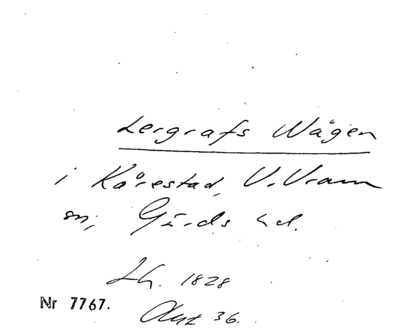 Lergrafs Wägen
i Kårestad, V. Vram
sn, Gärds hd.
Lh. 1828
Nr 7767.
Akt 36.